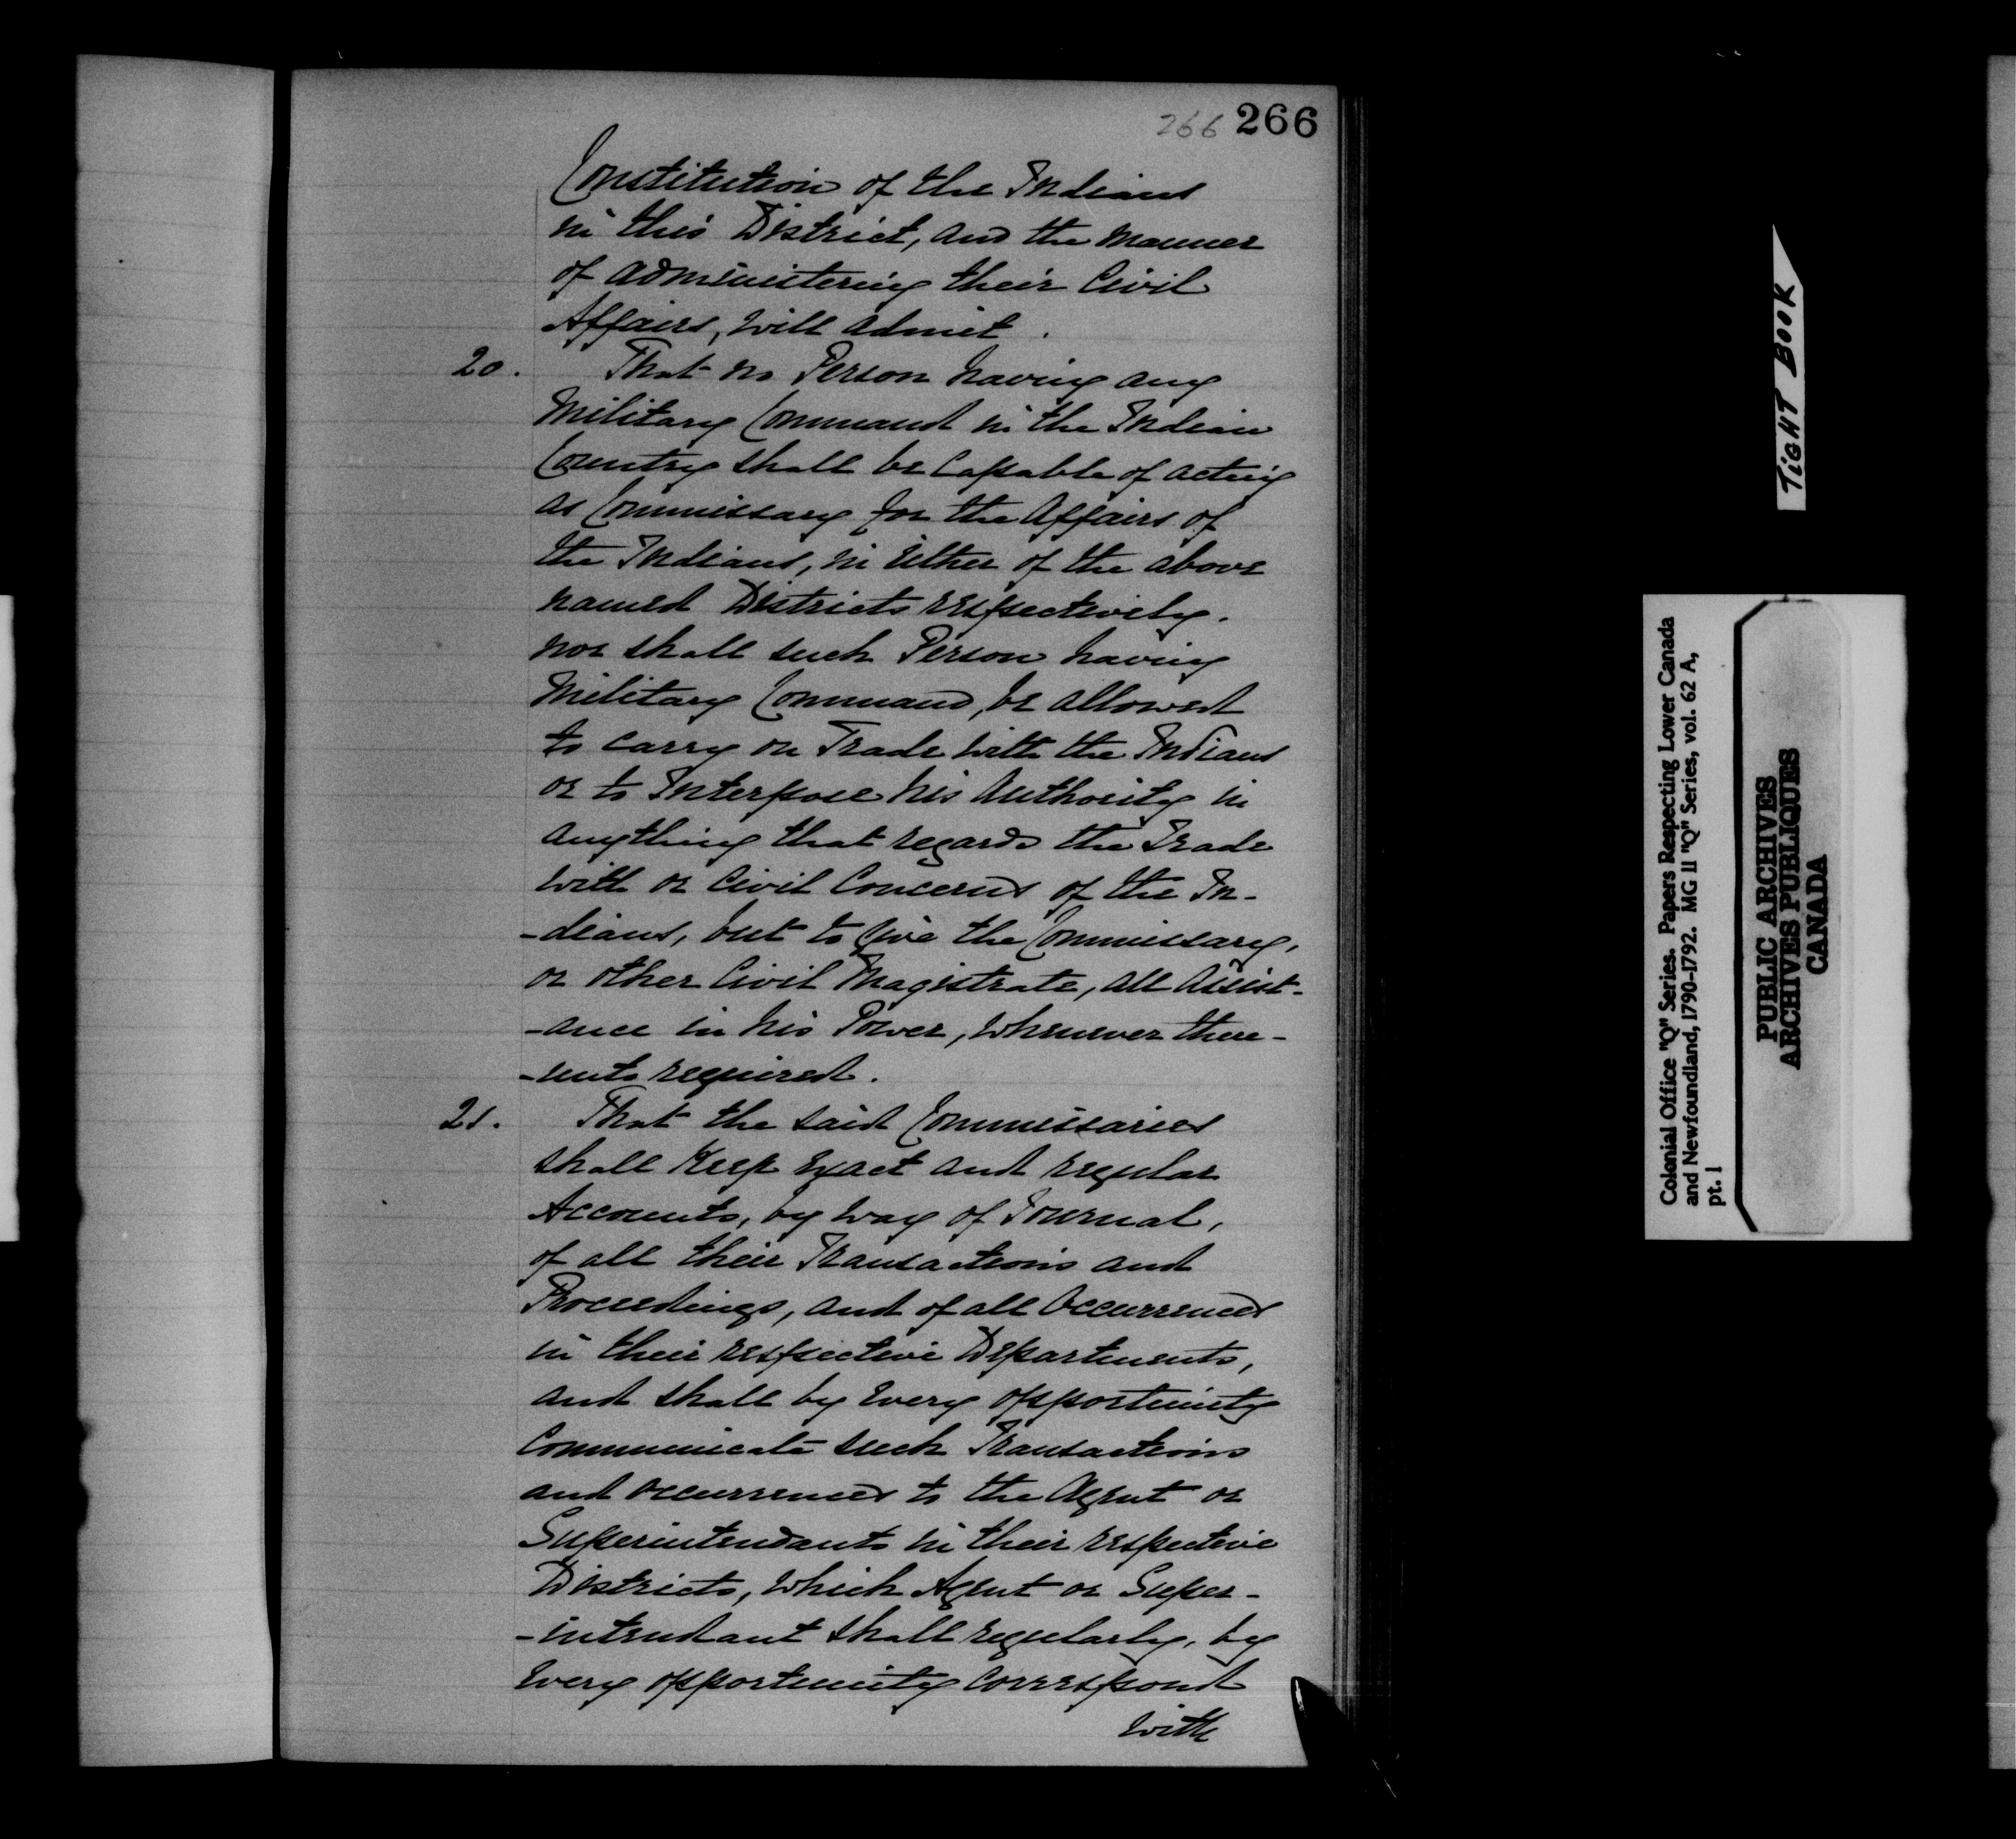 266 266
Constitution of the Indians
in this District, and the manner
of administering their Civil
Affairs, will admit.
20. That no Person having any
Military Command in the Indian
Country shall be Capable of acting
as Commissary for the Affairs of
the Indians, in Either of the above
named Districts respectively.
nor shall such Person having
Military Command, be allowed
to carry on Trade with the Indians
or to Interpose his Authority in
anything that regards the Trade
with or Civil Concerns of the In-
-dians, but to give the Commissary,
or other Civil Magistrate, all Assist-
-ance in his Power, whenever there-
-unto required.
21. That the said Commissaries
shall Keep Exact and regular
Accounts, by way of Journal,
of all their Transactions and
Proceedings, and of all Occurrences
in their respective Departments,
and shall by Every opportunity
Communicate such Transactions
and occurrences to the Agent or
Superintendants in their respective
Districts, which Agent or Super-
-intendant shall regularly, by
Every opportunity Correspond
with
TIGHT BOOK
Colonial Office "Q" Series. Papers Respecting Lower Canada
and Newfoundland, 1790-1792. MG 11 "Q" Series, vol. 62 A,
pt. 1
PUBLIC ARCHIVES
ARCHIVES PUBLIQUES
CANADA